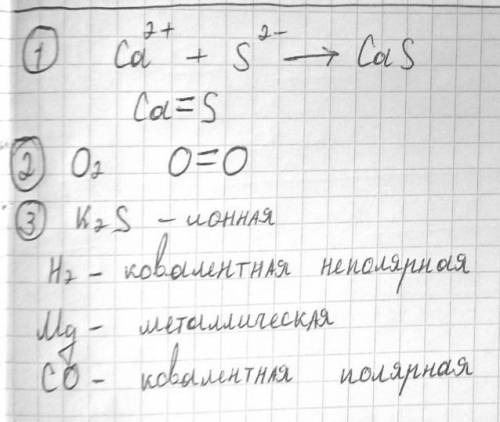 1 Ca²⁺ + S²⁻ → CaS
Ca=S
2 O₂ O=O
3 K₂S – ионная
H₂ – ковалентная неполярная
Mg – металлическая
CO – ковалентная полярная